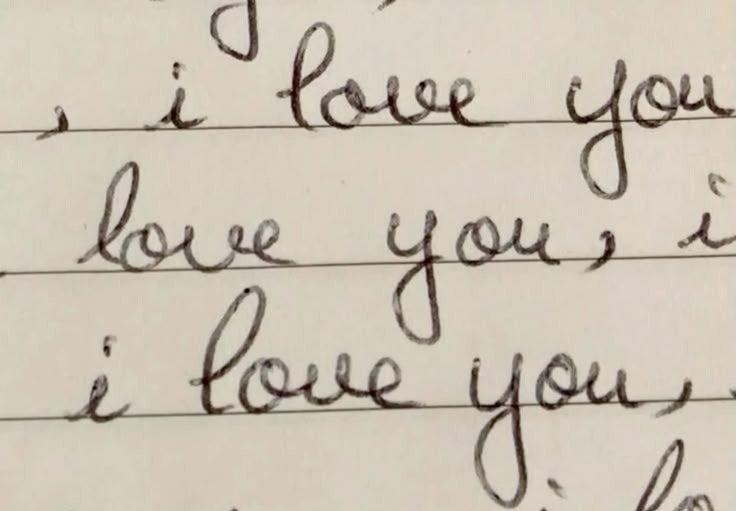 , i love you
love you, i
i love you,
i lo